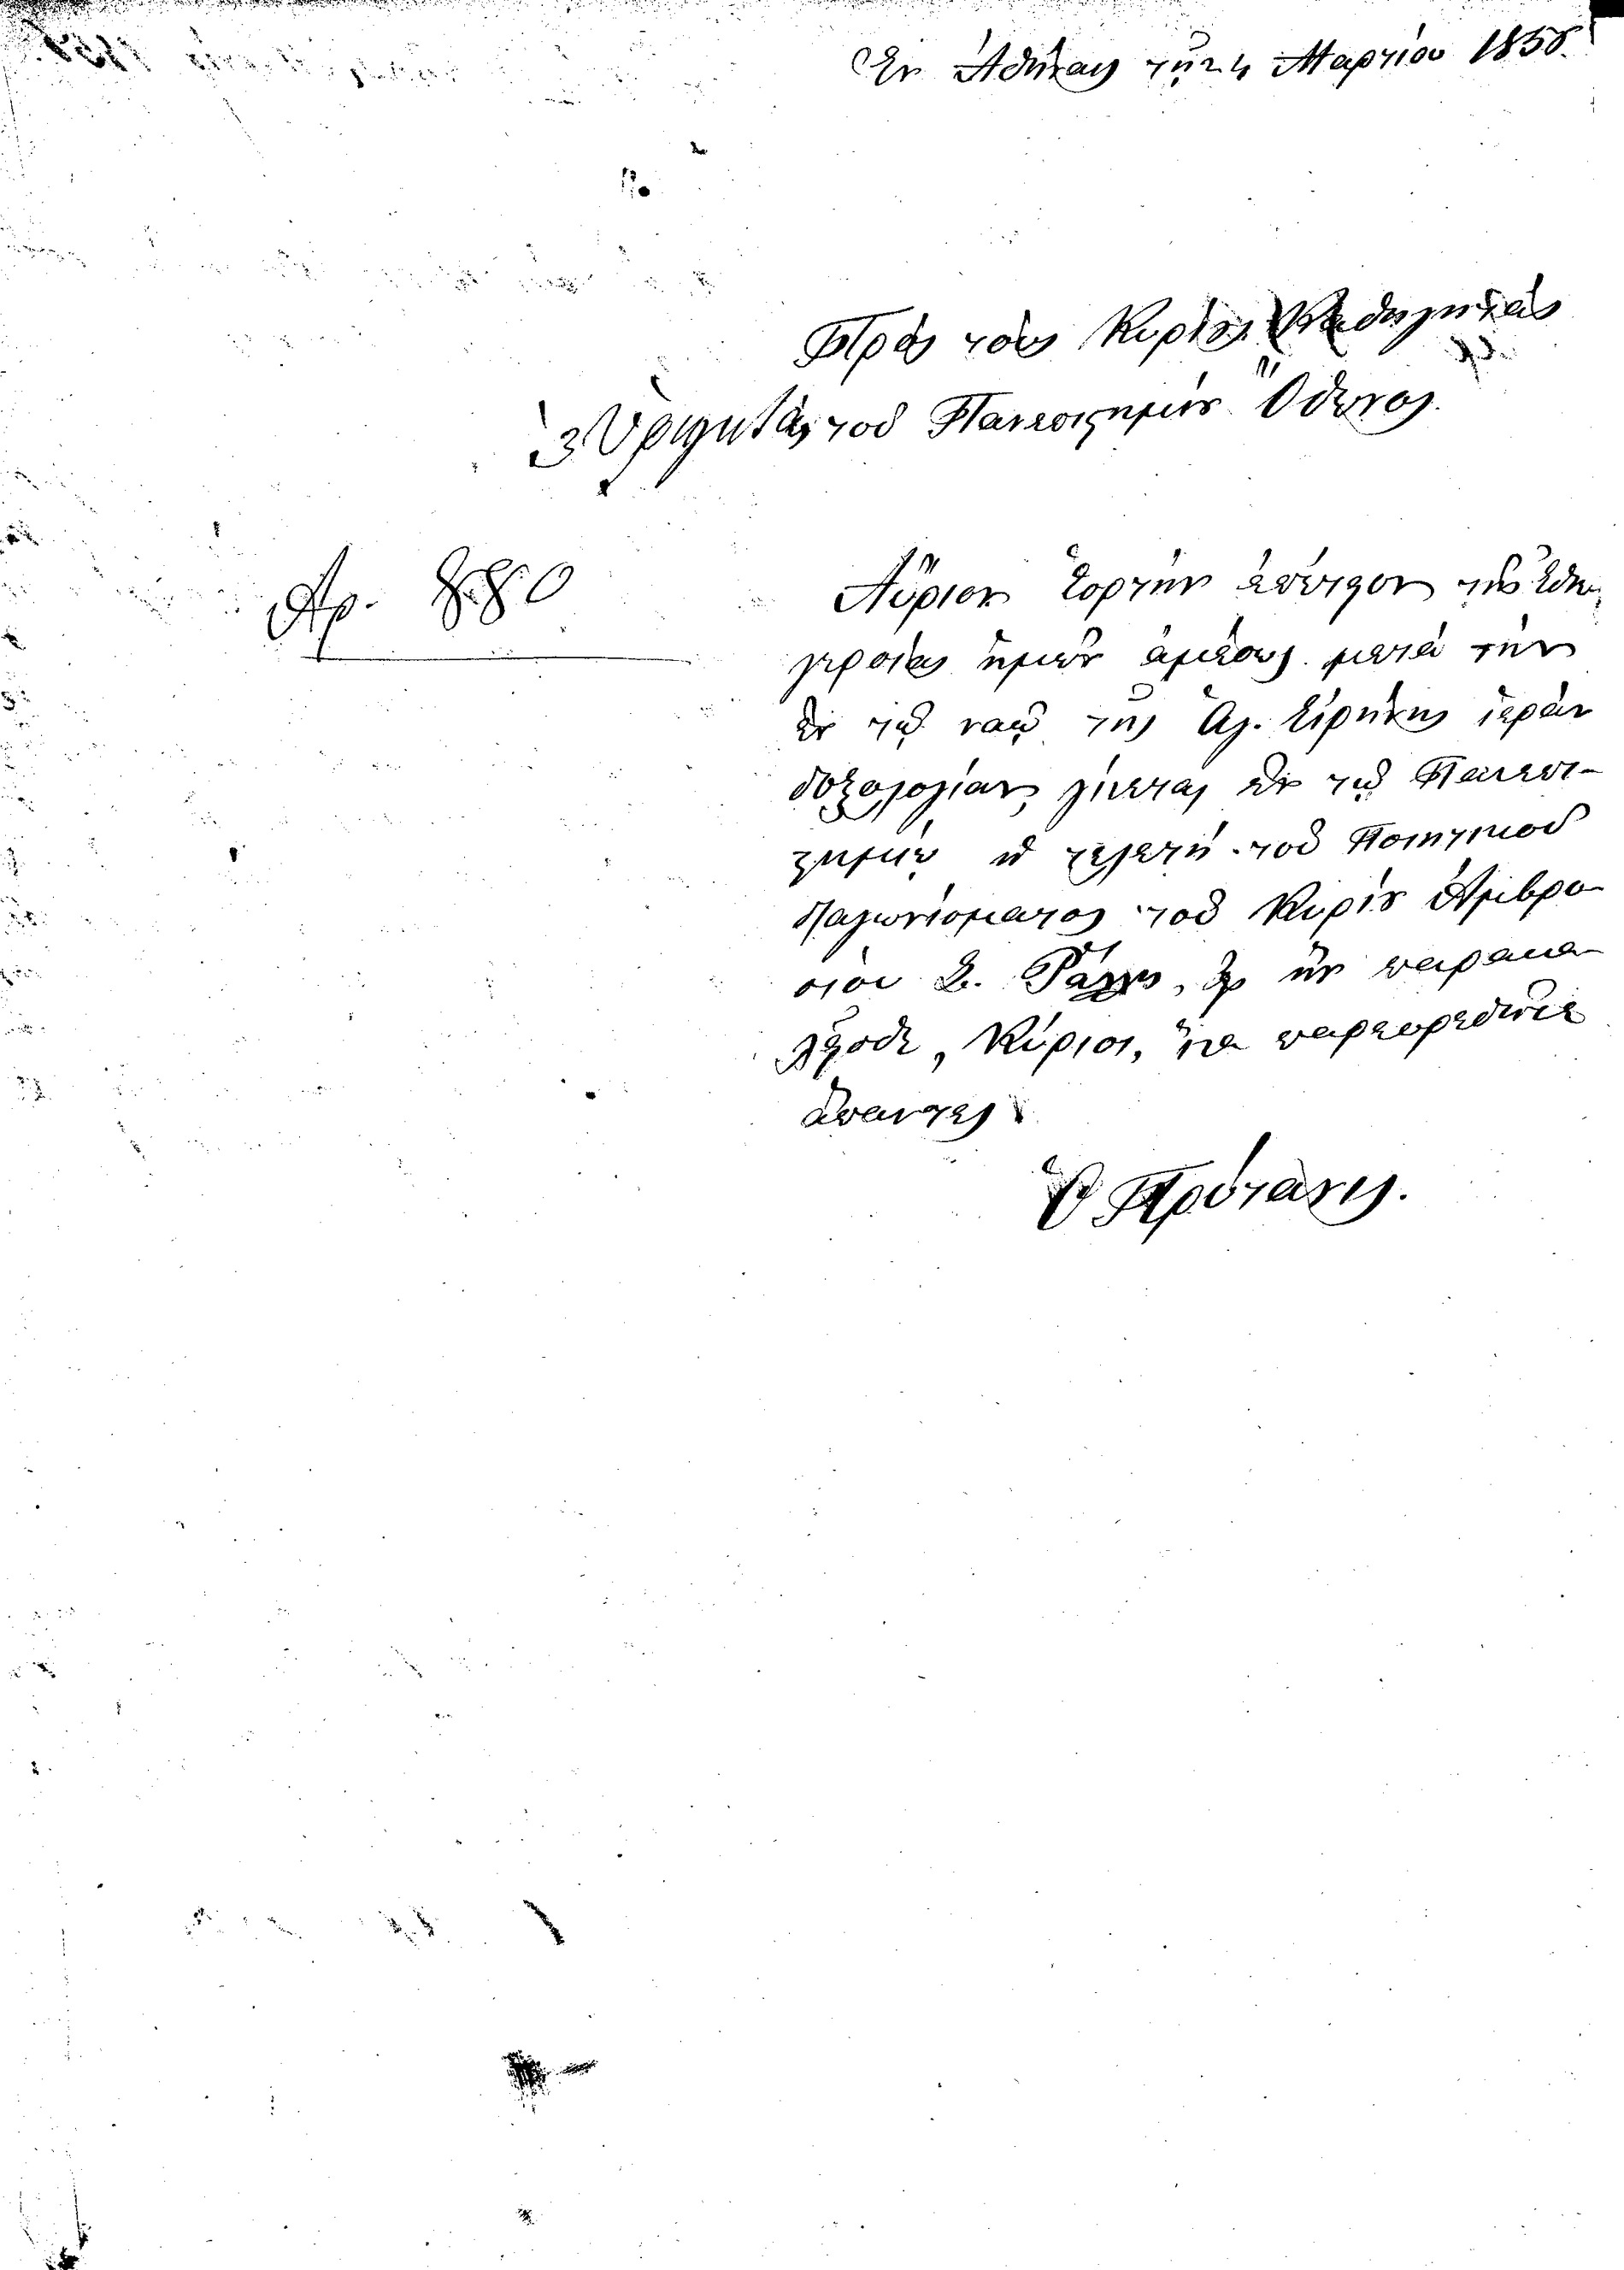 Ἐν Ἀθήναις τῇ 24 Μαρτίου 1858.
Πρὸς τοὺς Κυρίους Καθηγητὰς
καὶ Ὑφηγητὰς τοῦ Πανεπιστημίου Ὄθωνος.
Ἀρ. 880
Αὔριον ἑορτὴν ἐπέτειον τῆς ἐθνε-
γερσίας ἡμῶν ἀμέσως μετὰ τὴν
ἐν τῷ ναῷ τῆς Ἁγ. Εἰρήνης ἱερὰν
δοξολογίαν, γίνεται ἐν τῷ Πανεπι-
στημίῳ ἡ τελετὴ τοῦ Ποιητικοῦ
διαγωνίσματος τοῦ Κυρίου Ἀμβρο-
σίου Σ. Ῥάλλη, ἐφ' ἣν παρακα-
λεῖσθε, Κύριοι, ἵνα παρευρεθῆτε
ἅπαντες
Ὁ Πρύτανις.